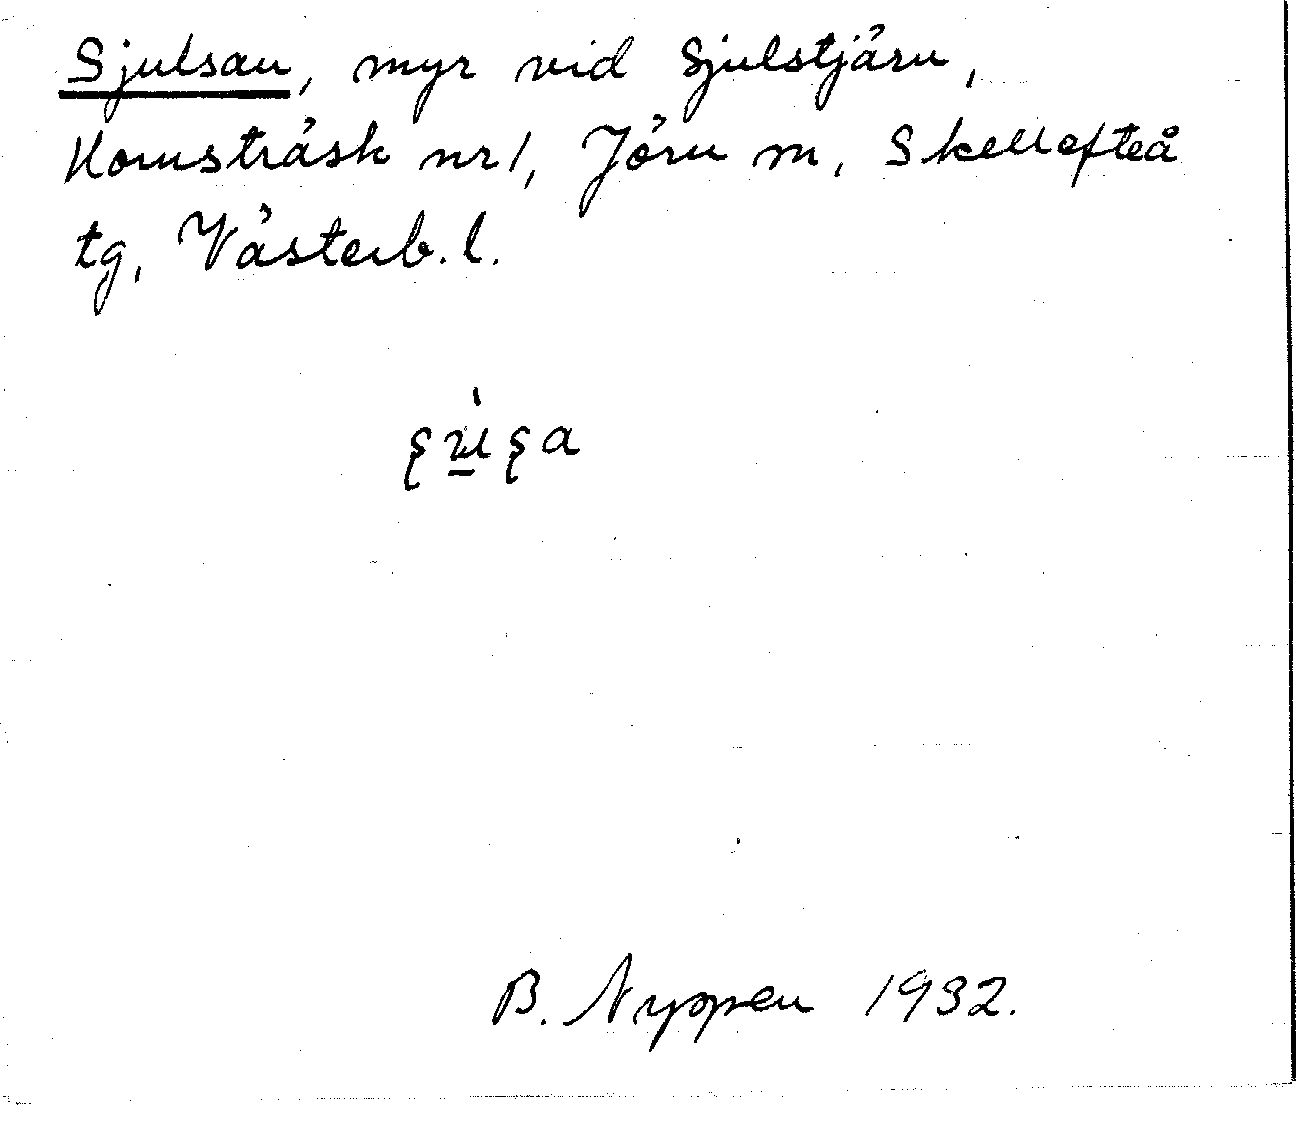 Sjulsan, myr vid Sjulstjärn,
Kornsträsk nr 1, Jörn m, Skellefteå
tg, Västerb. l.
B. Nyppen 1932.